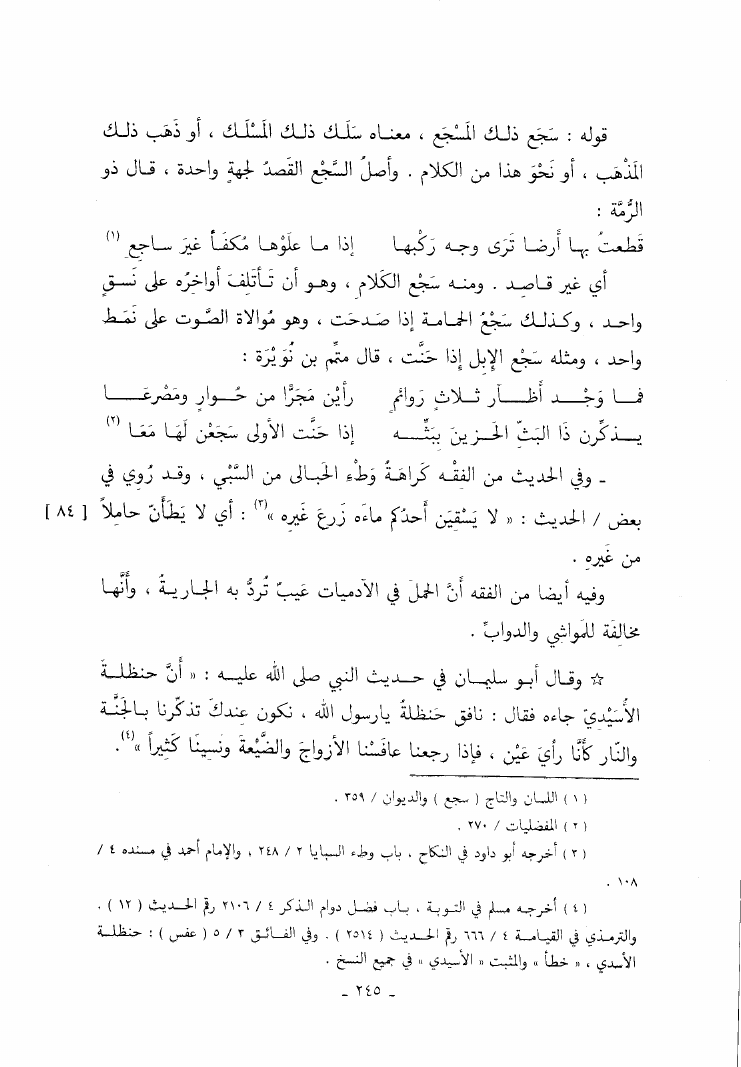 قوله : سَجَع ذلك المَسْجَع ، معناه سَلَك ذلك المَسْلَك ، أو ذَهَب ذلك
المَذْهَب ، أو نَحْوَ هذا من الكلام . وأصلُ السَّجْع القَصدُ لجهةٍ واحدة ، قال ذو
الرُّمَّة :
قَطعتُ بها أَرضا تَرَى وجه رَكْبها إذا ما علَوْها مُكفَأً غيرَ ساجع (١)
أي غير قاصد . ومنه سَجْع الكلام ، وهو أن تَأتَلِفَ أواخرُه على نَسقٍ
واحد ، وكذلك سَجْعُ الحمامة إذا صَدحَت ، وهو مُوالاة الصَّوت على نَمَط
واحد ، ومثله سَجْع الإبل إذا حَنَّت ، قال متمِّم بن نُوَيْرَة :
فما وَجْد أَظآر ثلاثٍ رَوائمٍ رأيْن مَجَرًّا من حُوارٍ ومَصْرعَا
يذكِّرن ذَا البَثِّ الحَزينَ ببَثِّه إذا حنَّت الأولى سَجَعْن لَهَا مَعَا (٢)
ـ وفي الحديث من الفِقْه كَراهَةُ وَطْءِ الحَبالى من السَّبْي ، وقد رُوِي في
بعض / الحديث : « لا يَسْقِيَن أحدُكم ماءَه زَرعَ غَيره »(٣) : أي لا يَطَأَنّ حاملاً [ ٨٤ ]
من غَيره .
وفيه أيضا من الفقه أنَّ الحملَ في الآدميات عَيبٌ تُردُّ به الجاريةُ ، وأنَّها
مخالفَة للمَواشي والدوابِّ .
☆ وقال أبو سليمان في حديث النبي صلى الله عليه : « أنَّ حنظلةَ
الأُسَيِّديّ جاءه فقال : نافق حَنظلةُ يارسول الله ، نكون عندكَ تذكّرنا بالجَنَّة
والنّار كأَنَّا رأيَ عَيْن ، فإذا رجعنا عافَسْنا الأزواجَ والضَّيْعةَ ونَسِينَا كَثِيراً »(٤).
( ١ ) اللسان والتاج ( سجع ) والديوان / ٣٥٩ .
( ٢ ) المفضليات / ٢٧٠ .
( ٣ ) أخرجه أبو داود في النكاح ، باب وطء السبايا ٢ / ٢٤٨ ، والإمام أحمد في مسنده ٤ /
١٠٨ .
( ٤ ) أخرجه مسلم في التوبة ، باب فضل دوام الذكر ٤ / ٢١٠٦ رقم الحديث ( ١٢ ) .
والترمذي في القيامة ٤ / ٦٦٦ رقم الحديث ( ٢٥١٤ ) . وفي الفائق ٣ / ٥ ( عفس ) : حنظلة
الأسدي ، « خطأ » والمثبت « الأسيدي » في جميع النسخ .
ـ ٢٤٥ ـ